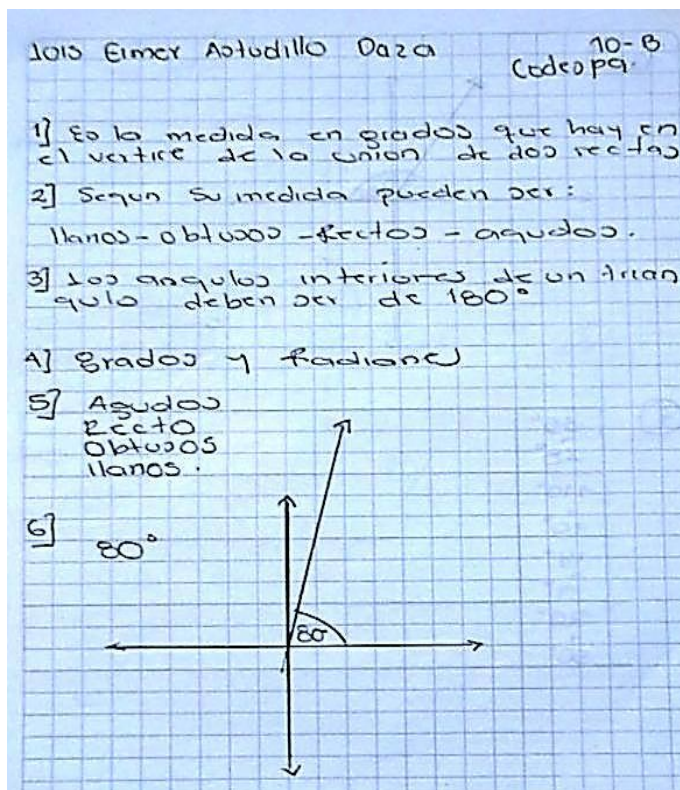 Luis Eimer Astudillo Daza 10-B
Codeopa.
1] Es la medida en grados que hay en
el vertice de la union de dos rectas
2] Segun su medida pueden ser:
llanos - obtusos - Rectos - agudos.
3] Los angulos interiores de un trian
gulo deben ser de 180°
4] grados y Radianes
5] Agudos
Recto
Obtusos
llanos.
6] 80°
80